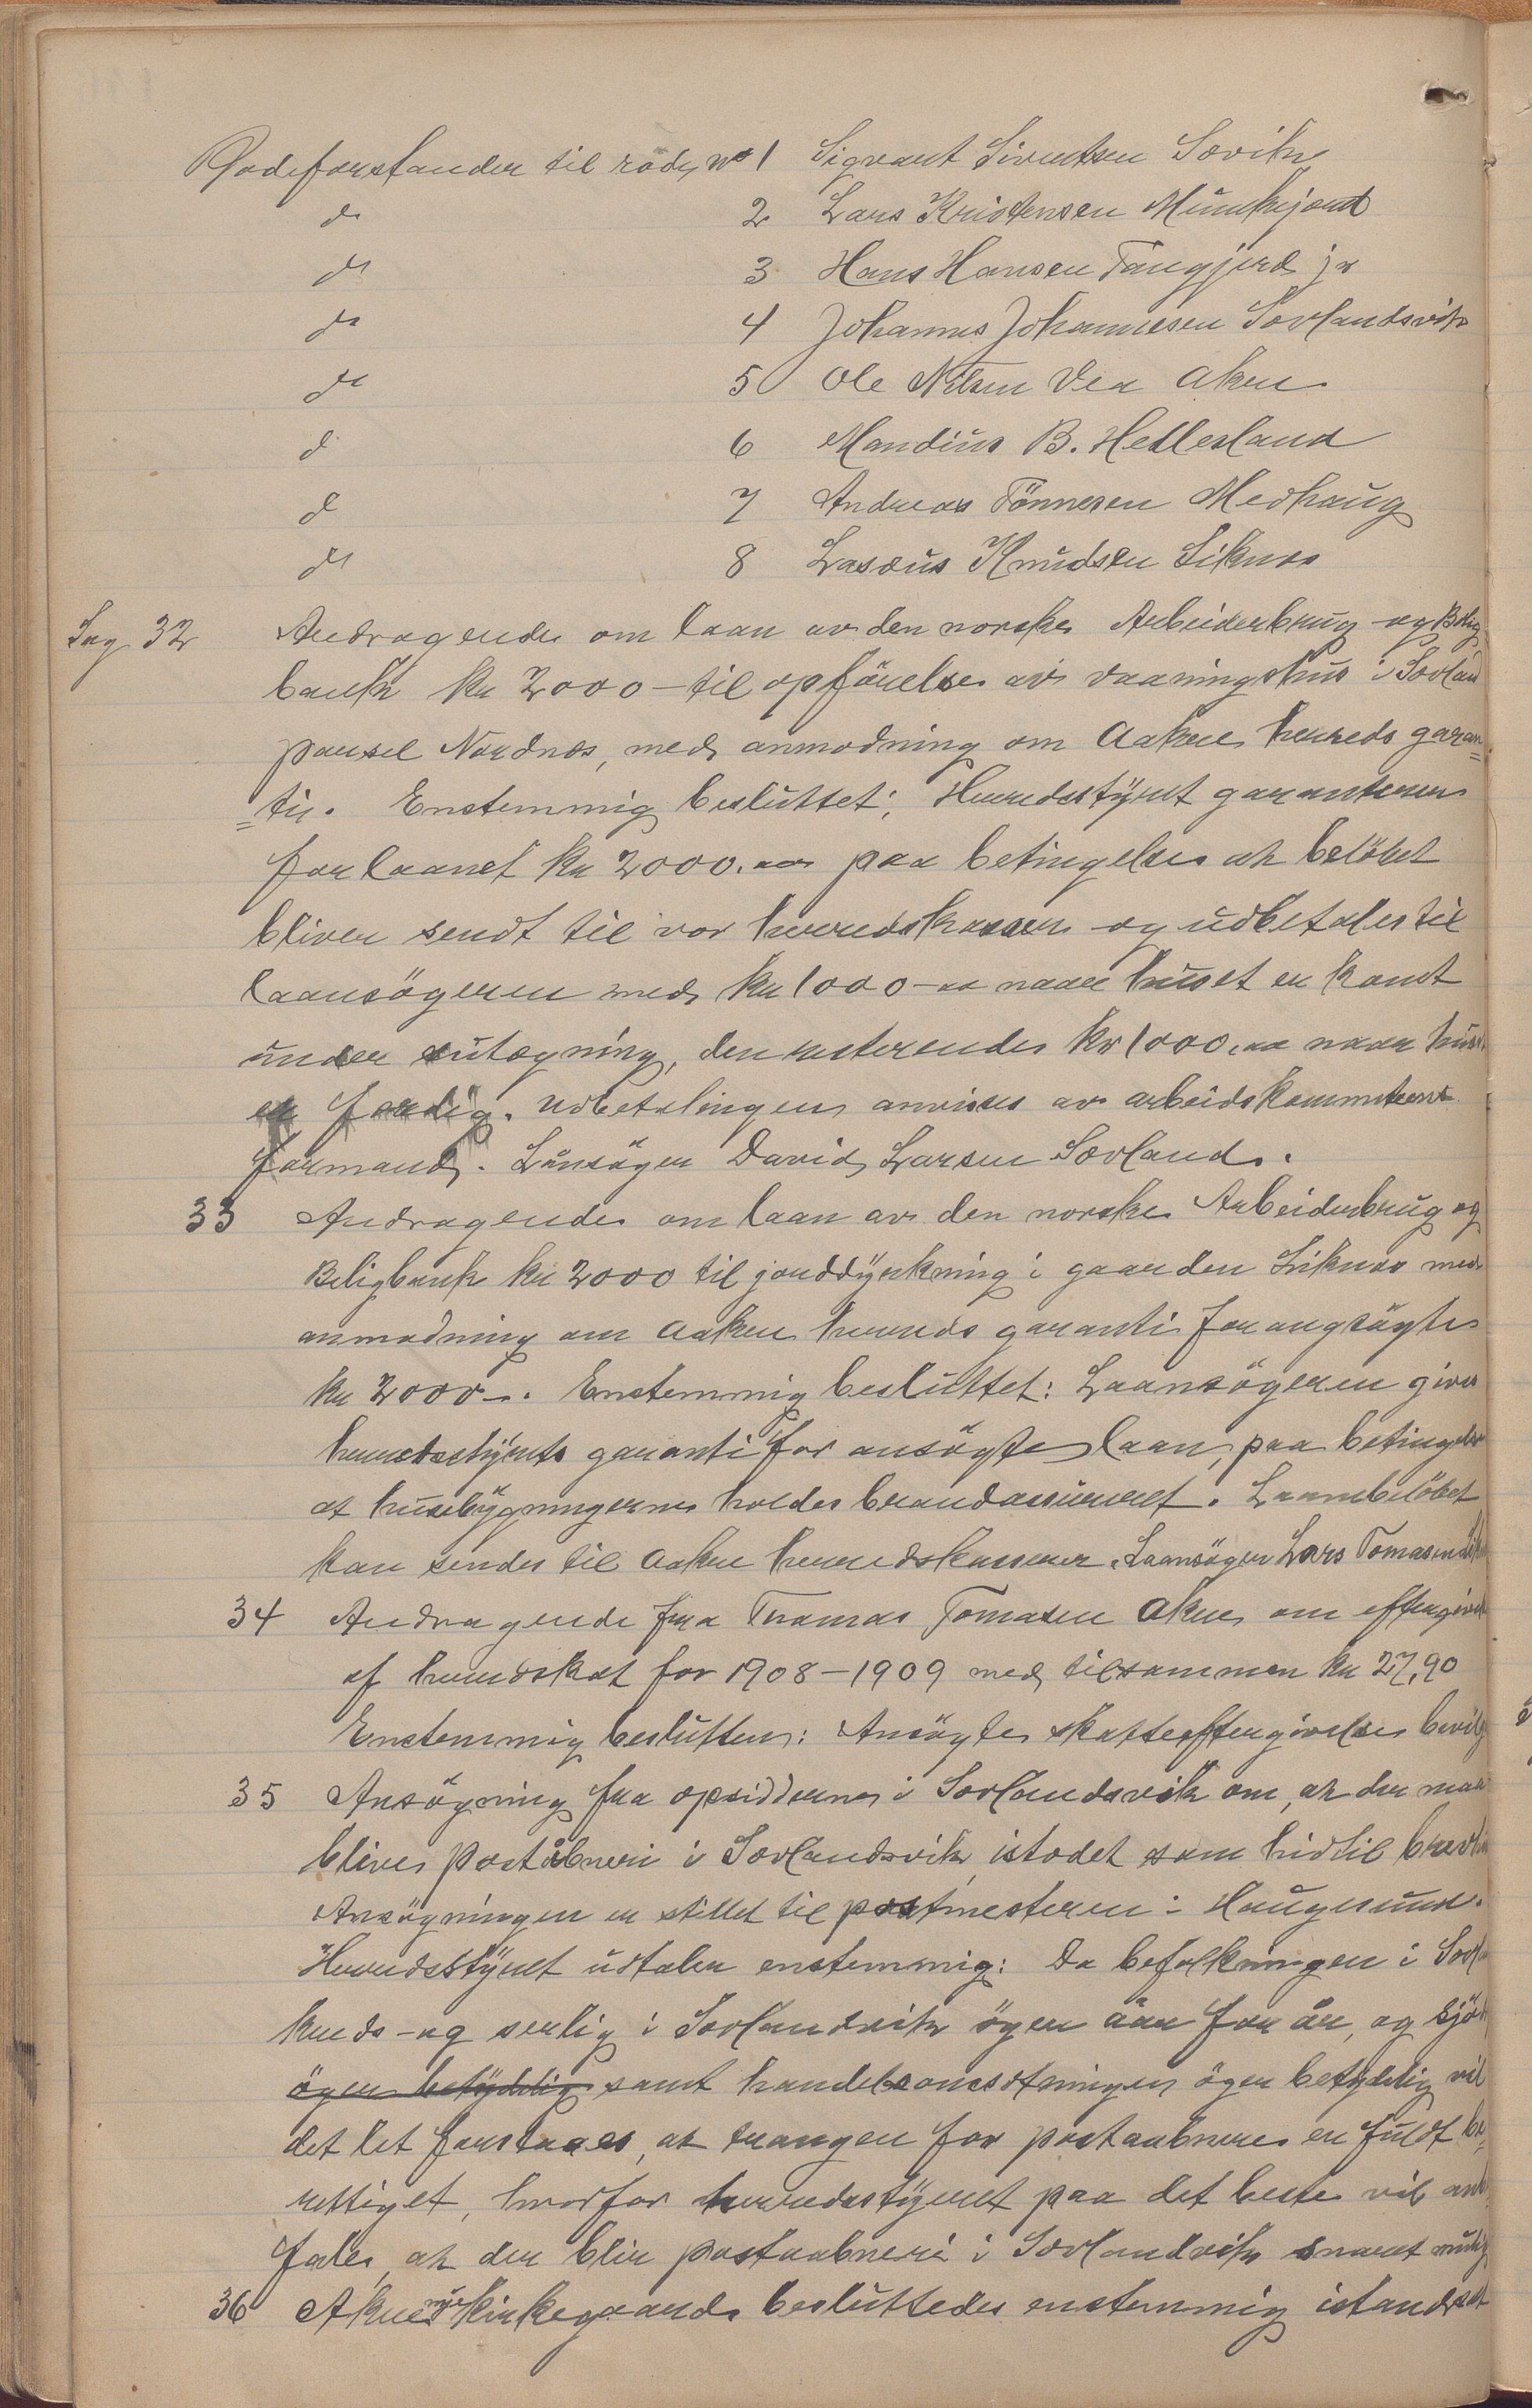 Rodeforstander til rode no 1 Sigvart Sivertsen Sævik
do 2 Lars Kristensen Munkejord
do 3 Hans Hansen Tangjerd jr
do 4 Johannes Johannesen Sævlandsvik
do 5 Ole Nilsen Vea Akre
do 6 Mandius B. Hetlesland
do 7 Andreas Tönnesen Medhaug
do 8 Lasæus Knudsen Liknes
Sag 32 Andragende om laan av den norske Arbeiderbrug og Bolig
bank kr 2000 - til opförelse av vaaningshus i Sævland
parsel Nordnes, med anmodning om Aakre herreds garan=
=ti. Enstemmig besluttet; Herredsstyret garanterer
for laanet kr 2000.00 paa betingelse at belöbet
bliver sendt til vor herredskasser og udbetales til
laansögeren med kr 1000-00 naar huset er komt
under utægning, den resterende kr 1000.00 naar huset
er færdig. Udbetalingen anvises av arbeidskommiteens
formand. Lånsöger David Larsen Sævland.
33 Andragende om laan av den norske Arbeiderbrug og
Boligbank kr 2000 til jorddyrkning i gaarden Liknes med
anmodning om Aakre herreds garanti for angsögte
kr 2000-. Enstemmig besluttet: Laansögeren gives
herredsstyrets garanti for ansögte laan, paa betingelse
at husebygningerne holdes brandassureret. Laanebelöbet
kan sendes til Aakre herredskasserer. Laansöger Lars Tomasen
34 Andragende fra Thomas Tomasen Akre om eftergivelse
af herredskat for 1908-1909 med tilsammen kr 27,90
Enstemmig besluttes: Ansögte skatteeftergivelse bevilg
35 Ansögning fra opsidderne i Sævlandsvik om, at der maa
blive poståbneri i Sævlandsvik istedet som hidtil brevhus
Ansögningen er stillet til postmesteren i Haugesund.
Herredsstyret udtaler enstemmig: Da befolkningen i Sævland
kreds - og serlig i Sævlandvik öger aar for år, og sjö
öger betydelig samt handelsomsetningen öger betydelig vil
det let forstaaes, at trangen for postaabneri er fuldt be=
rettiget, hvorfor herredsstyret paa det beste vil anbe
fale, at der blir postaabneri i Sævlandvik snarest mulig
36 Akre nye kirkegaard besluttedes enstemmig istandsat